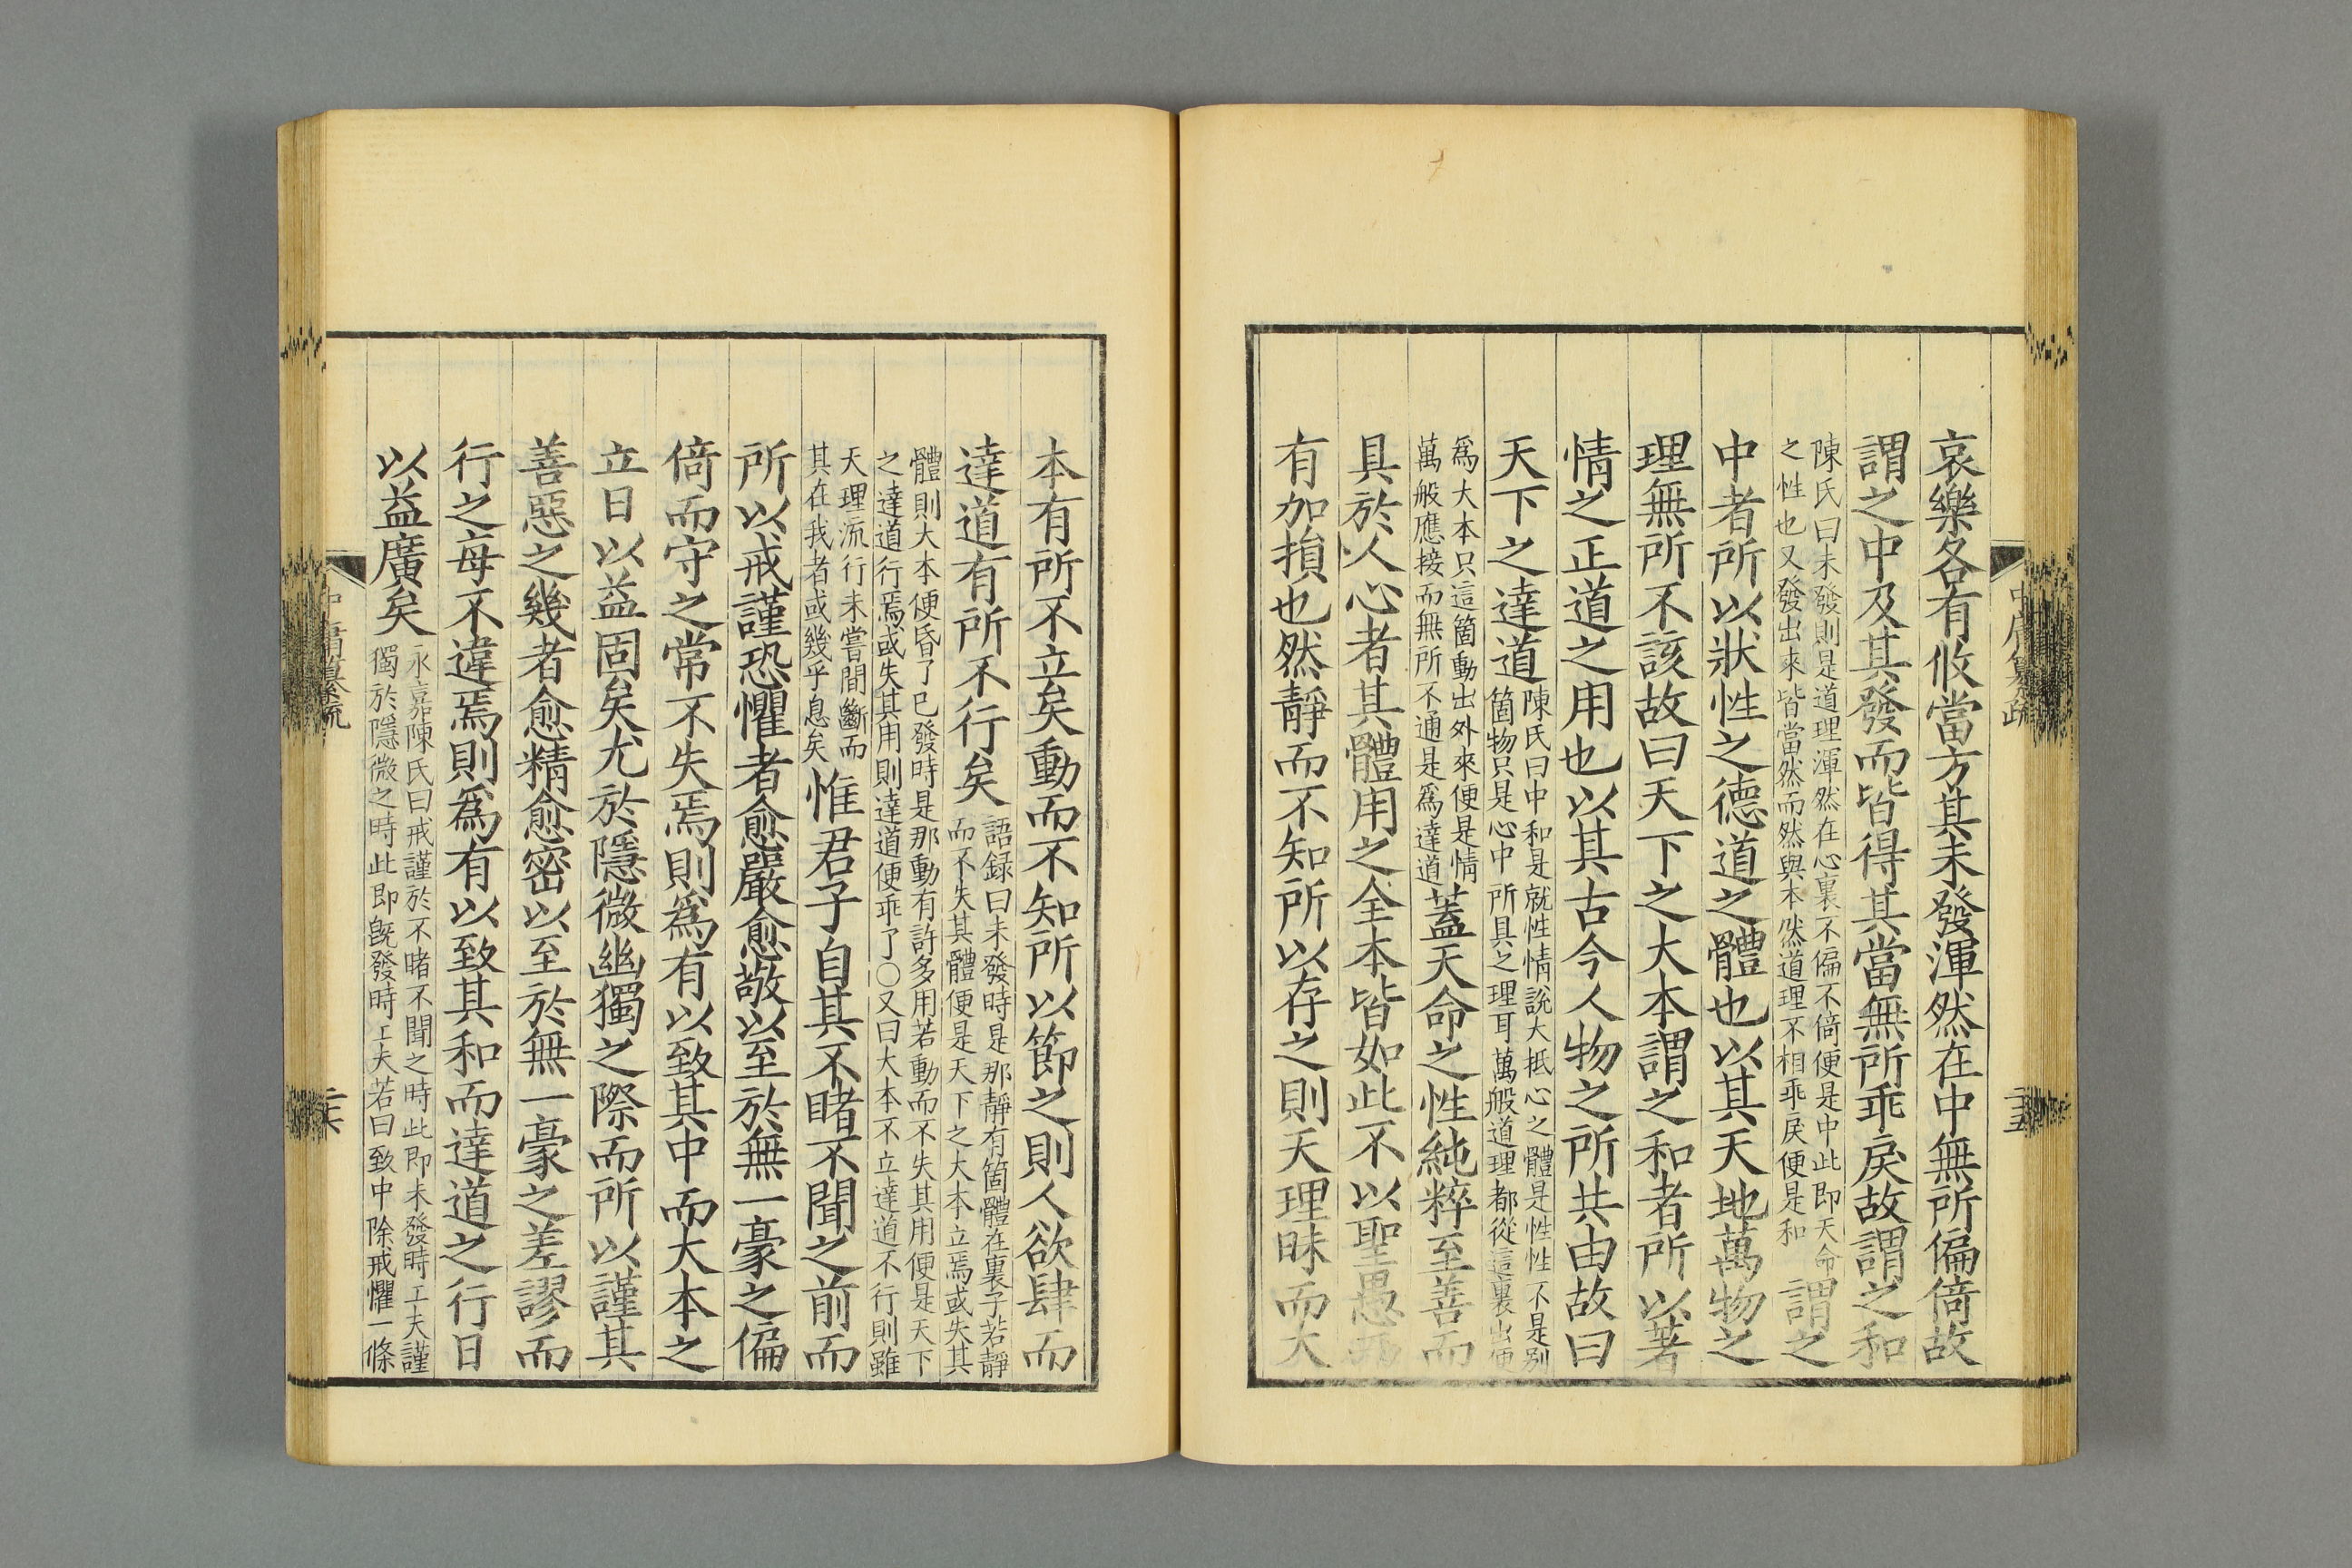 哀樂各有攸當方其未發渾然在中無所偏倚故
謂之中及其發而皆得其當無所乖戾故謂之和
陳氏曰未發則是道理渾然在心裏不偏不倚便是中此即天命
之性也又發出來皆當然而然與本然道理不相乖戾便是和
謂之
中者所以狀性之德道之體也以其天地萬物之
理無所不該故曰天下之大本謂之和者所以著
情之正道之用也以其古今人物之所共由故曰
天下之達道
陳氏曰中和是就性情說大抵心之體是性性不是別
箇物只是心中所具之理耳萬般道理都從這裏出便
爲大本只這箇動出外來便是情
萬般應接而無所不通是爲達道
蓋天命之性純粹至善而
具於人心者其體用之全本皆如此不以聖愚而
有加損也然靜而不知所以存之則天理昧而大
中庸纂疏
二十五
本有所不立矣動而不知所以節之則人欲肆而
達道有所不行矣
語録曰未發時是那靜有箇體在裏子若靜
而不失其體便是天下之大本立焉或失其
體則大本便昏了已發時是那動有許多用若動而不失其用便是天下
之達道行焉或失其用則達道便乖了○又曰大本不立達道不行則雖
天理流行未嘗間斷而
其在我者或幾乎息矣
惟君子自其不睹不聞之前而
所以戒謹恐懼者愈嚴愈敬以至於無一豪之偏
倚而守之常不失焉則爲有以致其中而大本之
立日以益固矣尤於隱微幽獨之際而所以謹其
善惡之幾者愈精愈密以至於無一豪之差謬而
行之每不違焉則爲有以致其和而達道之行日
以益廣矣
永嘉陳氏曰戒謹於不睹不聞之時此即未發時工夫謹
獨於隱微之時此即旣發時工夫若曰致中除戒懼一條
中庸纂疏
二十六